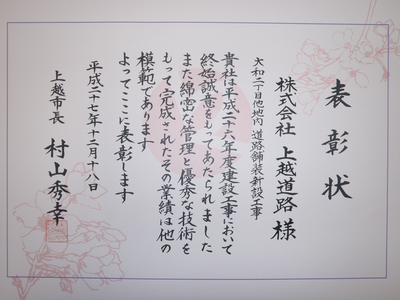 表彰状
株式会社 上越道路 様
大和二丁目他地内 道路舗装新設工事
貴社は平成二十六年度建設工事において
終始誠意をもってあたられました
また綿密な管理と優秀な技術を
もって完成されたその業績は他の
模範であります
よってここに表彰します
平成二十七年十二月十八日
上越市長 村山秀幸